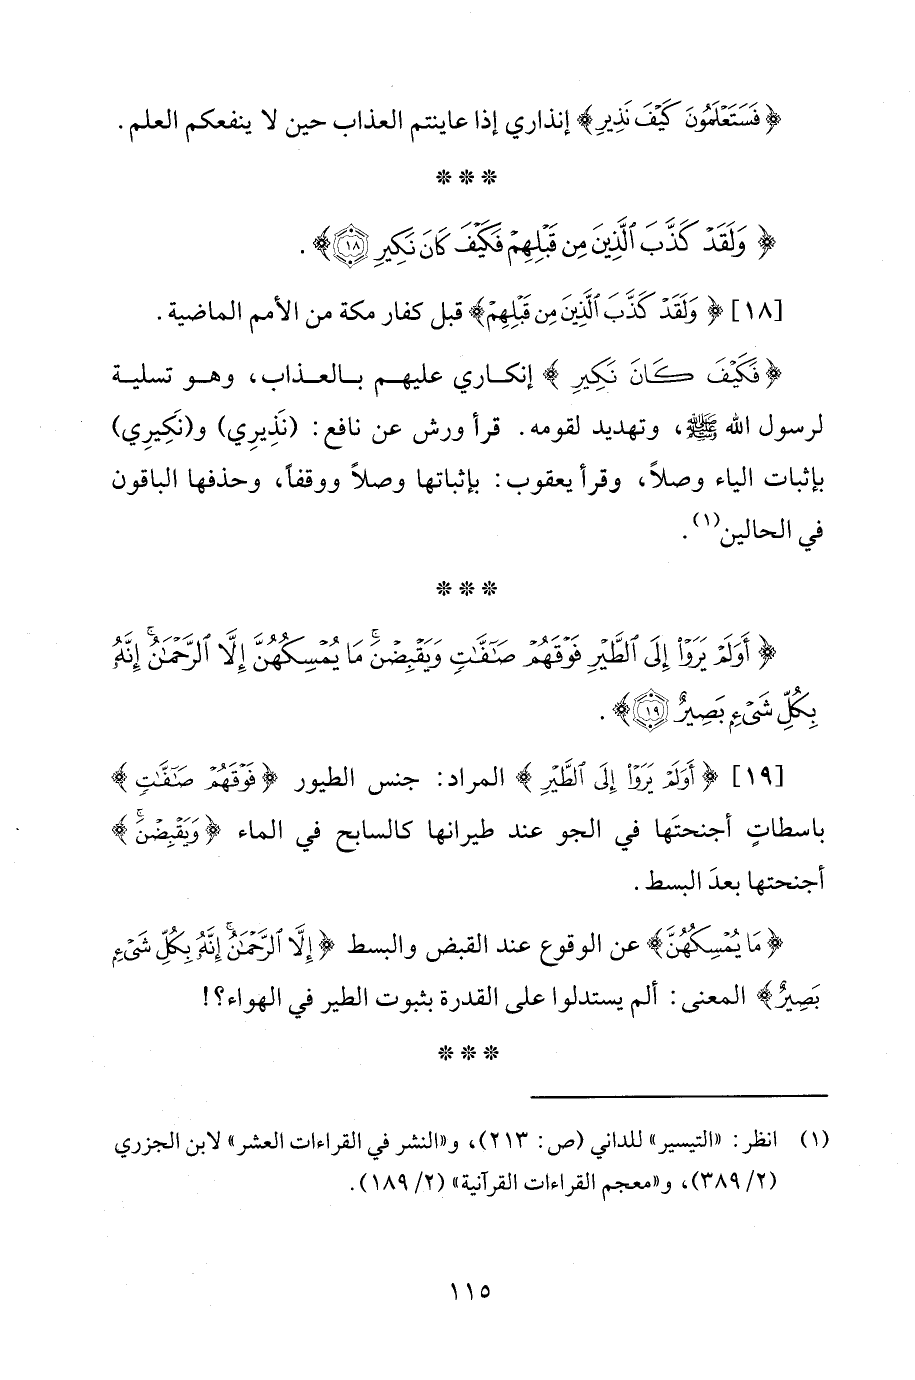 ﴿ فَسَتَعْلَمُونَ كَيْفَ نَذِيرِ ﴾ إنذاري إذا عاينتم العذاب حين لا ينفعكم العلم .
* * *
﴿ وَلَقَدْ كَذَّبَ ٱلَّذِينَ مِن قَبْلِهِمْ فَكَيْفَ كَانَ نَكِيرِ ١٨ ﴾ .
[١٨] ﴿ وَلَقَدْ كَذَّبَ ٱلَّذِينَ مِن قَبْلِهِمْ ﴾ قبل كفار مكة من الأمم الماضية .
﴿ فَكَيْفَ كَانَ نَكِيرِ ﴾ إنكاري عليهم بالعذاب، وهو تسلية
لرسول الله ﷺ، وتهديد لقومه. قرأ ورش عن نافع: (نَذِيرِي) و(نَكِيرِي)
بإثبات الياء وصلاً، وقرأ يعقوب: بإثباتها وصلاً ووقفاً، وحذفها الباقون
في الحالين(١).
* * *
﴿ أَوَلَمْ يَرَوْا۟ إِلَى ٱلطَّيْرِ فَوْقَهُمْ صَٰٓفَّٰتٍ وَيَقْبِضْنَ ۚ مَا يُمْسِكُهُنَّ إِلَّا ٱلرَّحْمَٰنُ ۚ إِنَّهُۥ
بِكُلِّ شَىْءٍۭ بَصِيرٌ ١٩ ﴾ .
[١٩] ﴿ أَوَلَمْ يَرَوْا۟ إِلَى ٱلطَّيْرِ ﴾ المراد: جنس الطيور ﴿ فَوْقَهُمْ صَٰٓفَّٰتٍ ﴾
باسطاتٍ أجنحتَها في الجو عند طيرانها كالسابح في الماء ﴿ وَيَقْبِضْنَ ۚ ﴾
أجنحتها بعدَ البسط .
﴿ مَا يُمْسِكُهُنَّ ﴾ عن الوقوع عند القبض والبسط ﴿ إِلَّا ٱلرَّحْمَٰنُ ۚ إِنَّهُۥ بِكُلِّ شَىْءٍۭ
بَصِيرٌ ﴾ المعنى: ألم يستدلوا على القدرة بثبوت الطير في الهواء؟!
* * *
(١) انظر: «التيسير» للداني (ص: ٢١٣)، و«النشر في القراءات العشر» لابن الجزري
(٢/ ٣٨٩)، و«معجم القراءات القرآنية» (٢/ ١٨٩).
١١٥